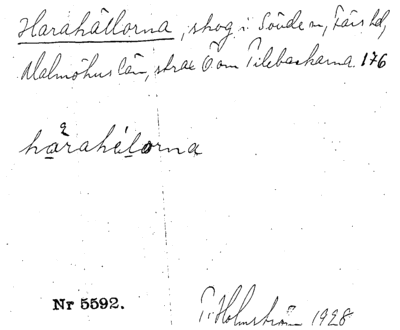 Harahållorna, skog i Sövde sn, Färs hd,
Malmöhus län, strax Ö om Tilebackarna. 176
hàrahélorna
Nr 5592.
T. Holmström 1928